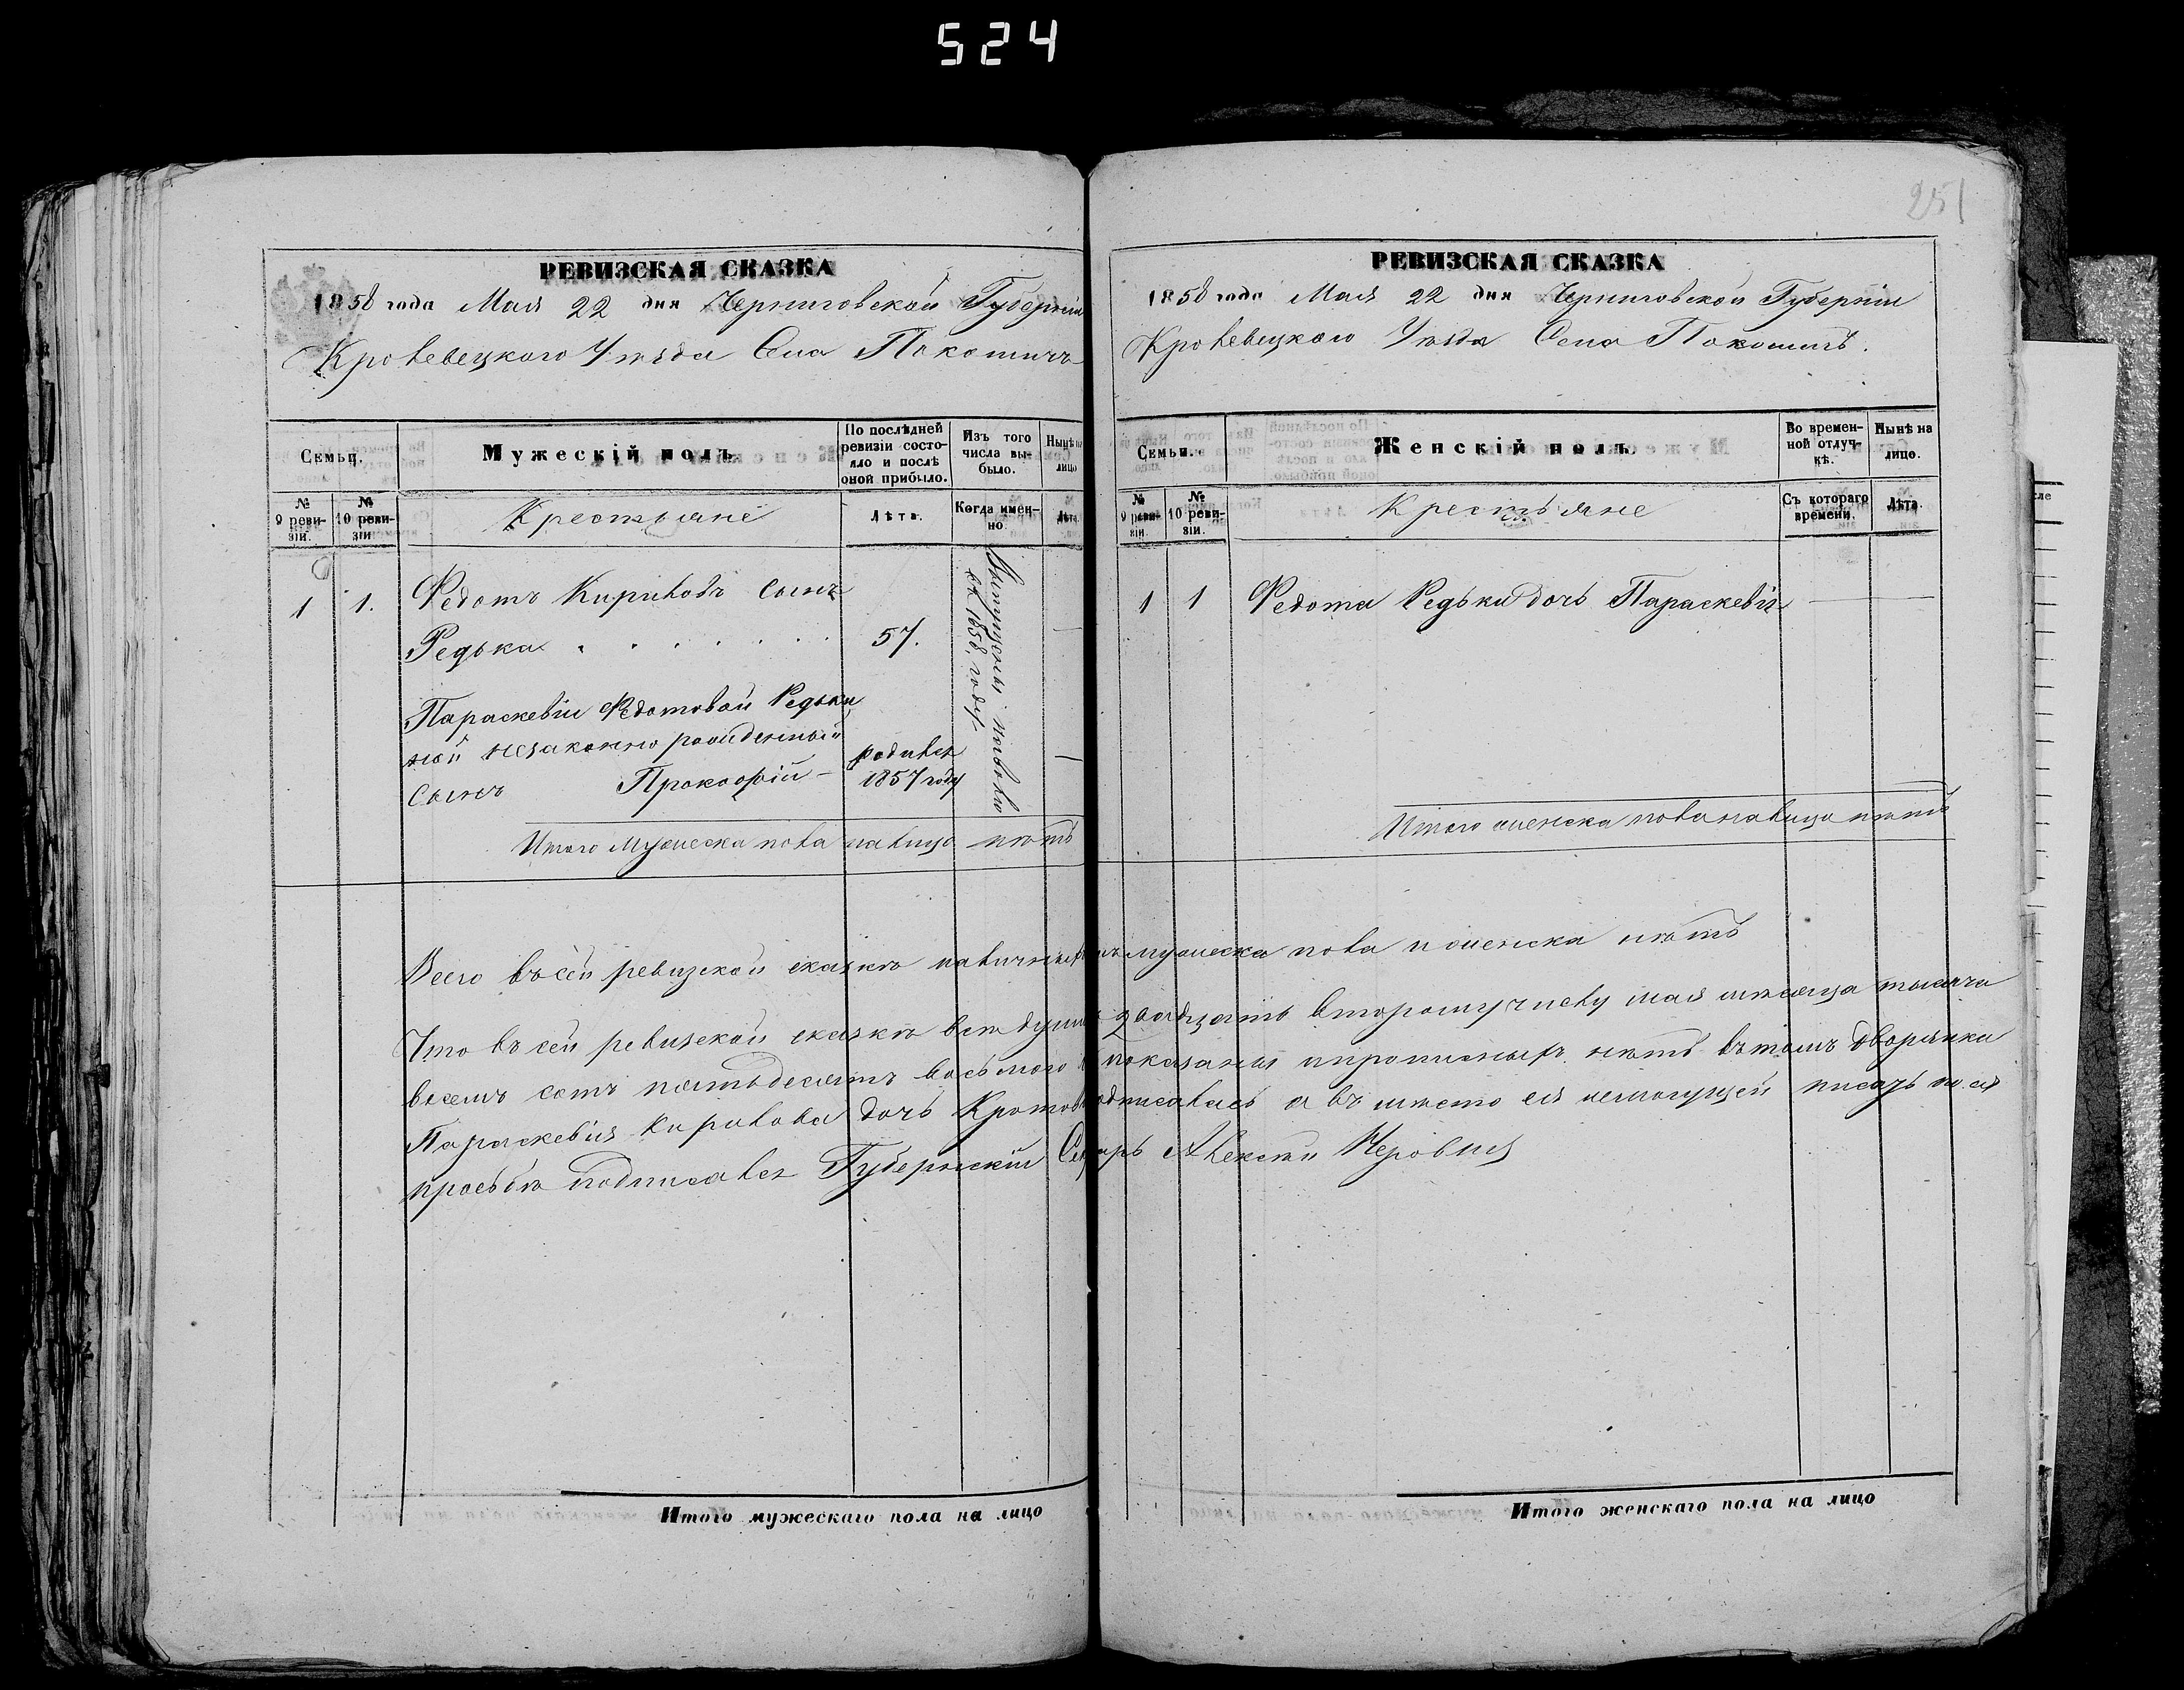 524
251
РЕВИЗСКАЯ СКАЗКА
1858 года Мая 22 дня Черниговской Губерніи
Кролевецкого Уѣзда Села Покошичъ
Семьи.
Мужескій полъ.
По послѣдней ревизіи состояло и послѣ оной прибыло.
Изъ того числа выбыло.
Нынѣ на лицо
№ 9 ревизіи.
№ 10 ревизіи
Крестьяне
Лѣта.
Когда именно.
Лѣта.
1 1. Федотъ Кириловъ Сынъ
Редька . . . . . . . 57.
Параскевіи Федотовой Редьки
ной незаконно рожденный
Сынъ Прокофій – родился
1857 году
въ 1858 году
Итого Мужеска пола налицо нѣтъ
РЕВИЗСКАЯ СКАЗКА
1858 года Мая 22 дня Черниговской Губерніи
Кролевецкого Уѣзда Села Покошичъ.
Семьи.
Женскій полъ.
Во временной отлучкѣ.
Нынѣ на лицо.
№ 9 ревизіи.
№ 10 ревизіи.
Крестьяне
Съ котораго времени.
Лѣта.
1 1 Федота Редьки дочь Параскевія
Итого женска пола налицо нѣтъ
Всего въ сей ревизской сказкѣ наличныхъ мужеска пола и женска нѣтъ
Что въ сей ревизской сказкѣ всѣ души двадцать второму числу мая мѣсяца тысяча
восемъ сотъ пятьдесятъ восьмого показаны и прописныхъ нѣтъ въ томъ дворянка
Параскевія Кирилова дочь подписалась а въ мѣсто ея немогущей писать по ея
просьбѣ подписался Губернскій Алексѣй
Итого мужескаго пола на лицо
Итого женскаго пола на лицо